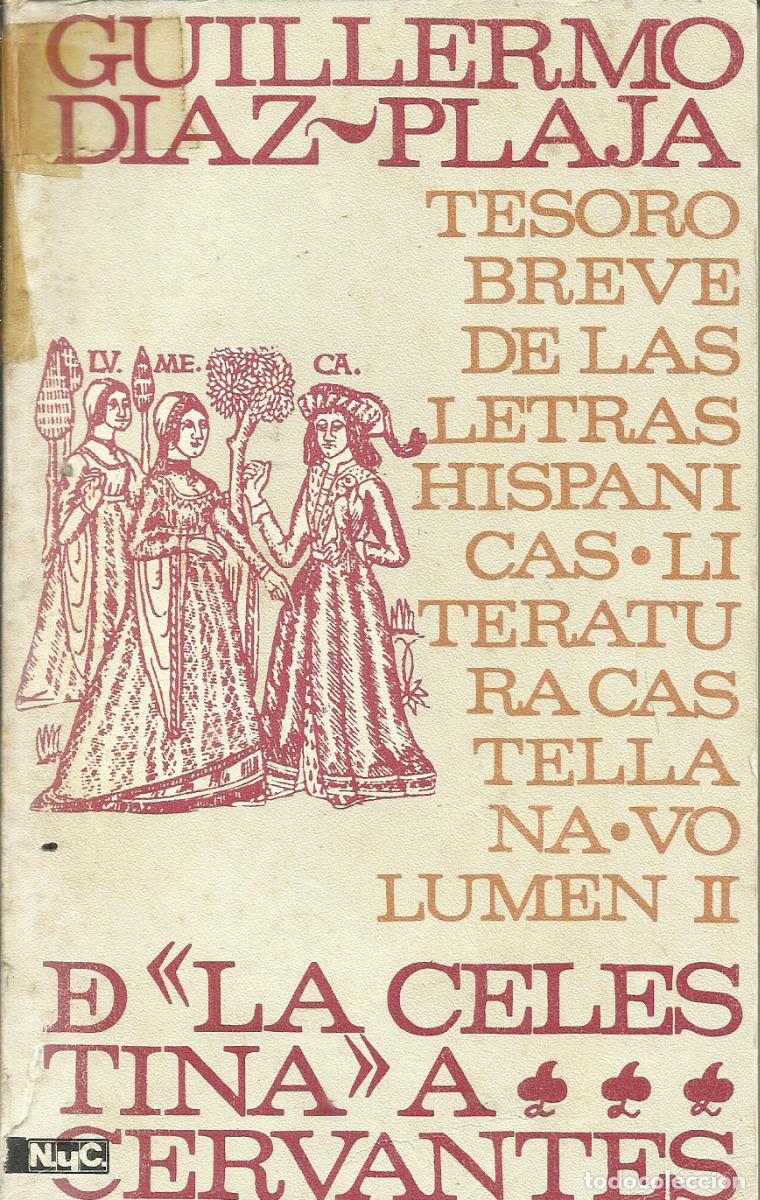 GUILLERMO
DIAZ~PLAJA
TESORO
BREVE
DE LAS
LETRAS
HISPANI
CAS • LI
TERATU
RA CAS
TELLA
NA • VO
LUMEN II
LV. ME. CA.
DE «LA CELES
TINA» A
CERVANTES
N.yC.
todocoleccion